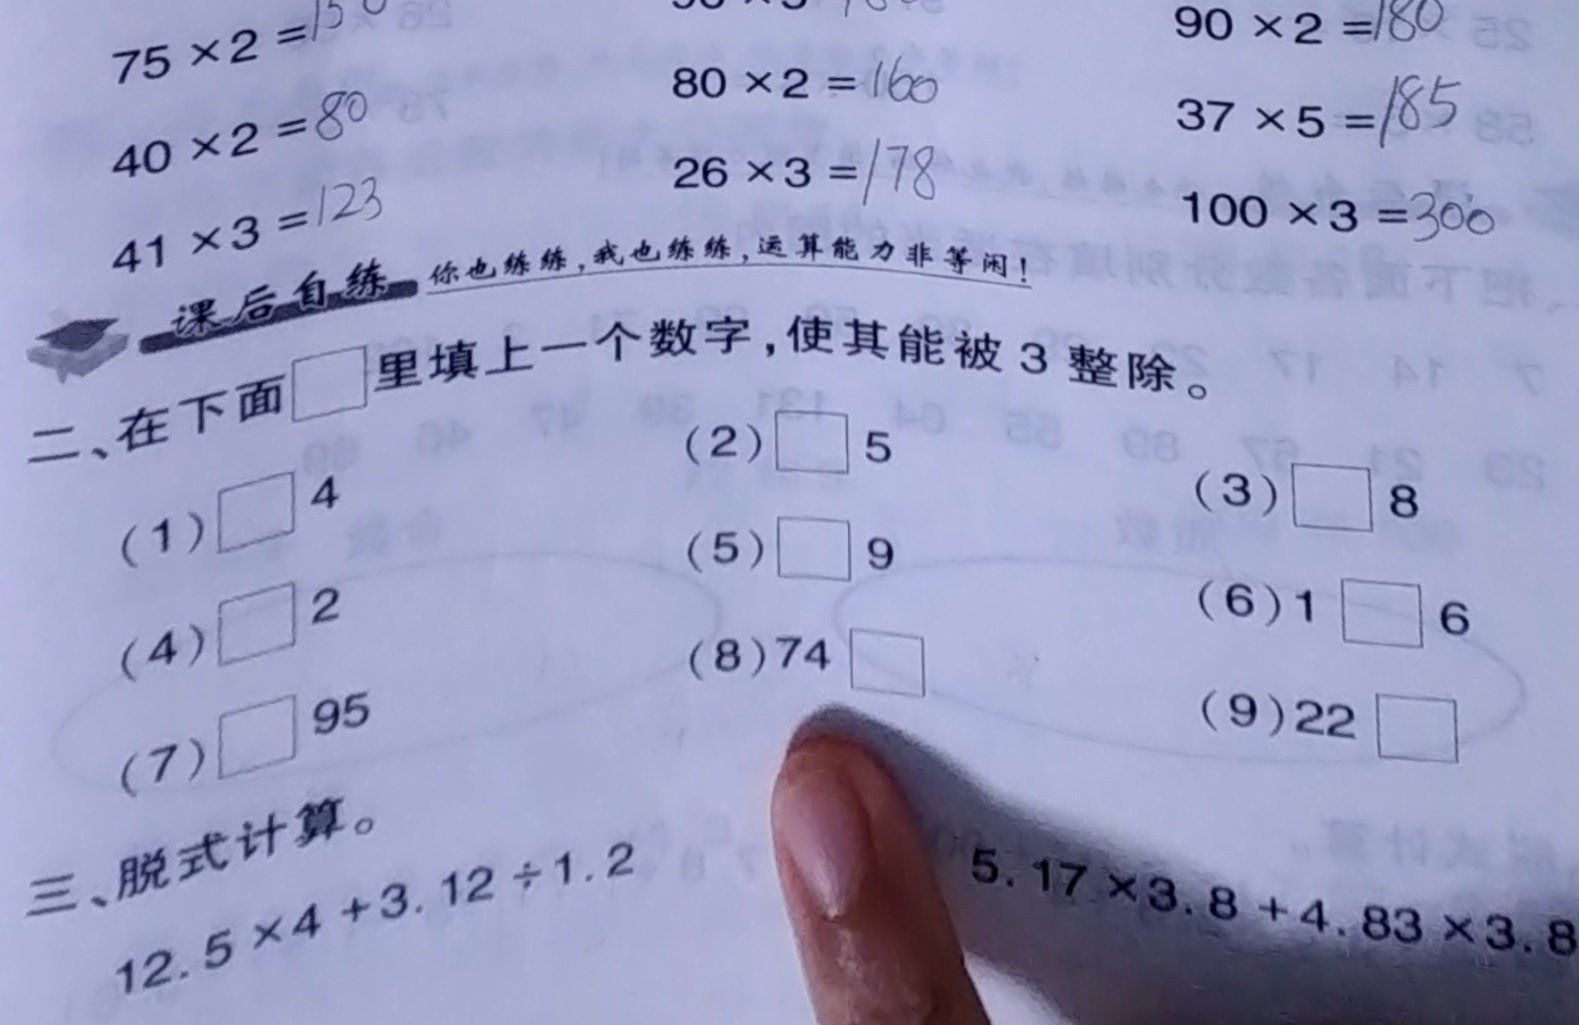 90 × 2 =180
75 × 2 =150
80 × 2 =160
37 × 5 =185
40 × 2 =80
26 × 3 =178
100 × 3 =300
41 × 3 =123
课后自练 你也练练,我也练练,运算能力非等闲!
二、在下面□里填上一个数字,使其能被 3 整除。
(1)□4 (2)□5 (3)□8
(4)□2 (5)□9 (6)1□6
(7)□95 (8)74□ (9)22□
三、脱式计算。
12.5×4+3.12÷1.2 5.17×3.8+4.83×3.8